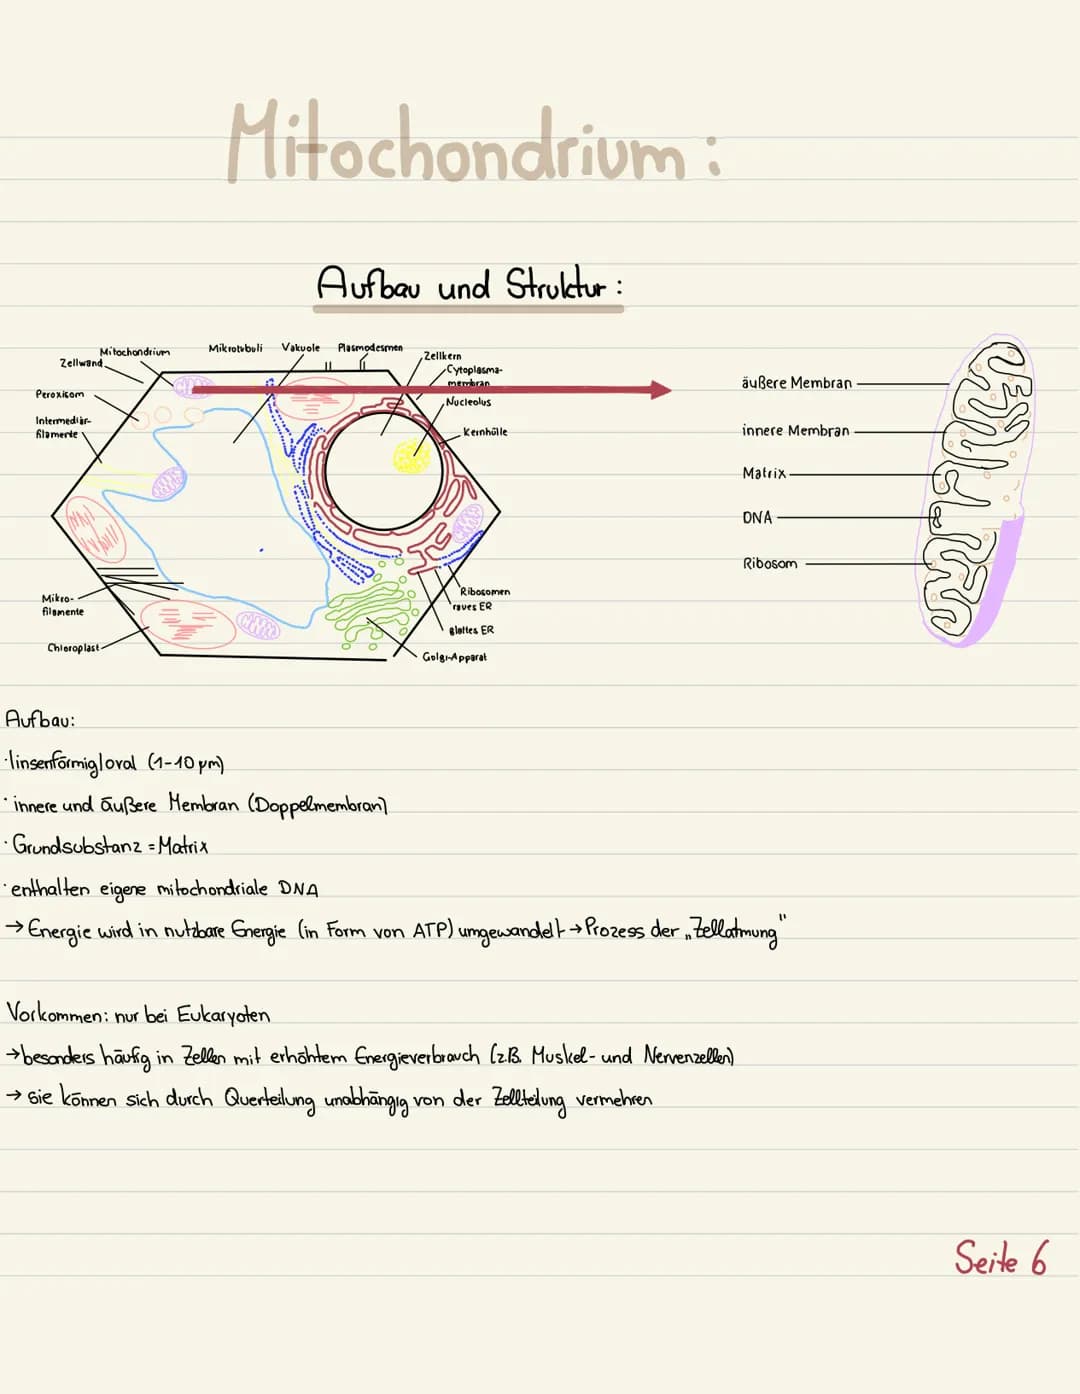 Mitochondrium:
Aufbau und Struktur:
Mitochondrium
Zellwand
Peroxisom
Intermediär-
filamente
Mikro-
filamente
Chloroplast
Mikrotubuli
Vakuole
Plasmodesmen
Zellkern
Cytoplasma-
membran
Nucleolus
Kernhülle
Ribosomen
raues ER
glattes ER
Golgi-Apparat
äußere Membran
innere Membran
Matrix
DNA
Ribosom
Aufbau:
·linsenförmig/oval (1-10 µm)
·innere und äußere Membran (Doppelmembran)
·Grundsubstanz = Matrix
·enthalten eigene mitochondriale DNA
→ Energie wird in nutzbare Energie (in Form von ATP) umgewandelt → Prozess der „Zellatmung"
Vorkommen: nur bei Eukaryoten
→ besonders häufig in Zellen mit erhöhtem Energieverbrauch (z.B. Muskel- und Nervenzellen)
→ sie können sich durch Querteilung unabhängig von der Zellteilung vermehren
Seite 6